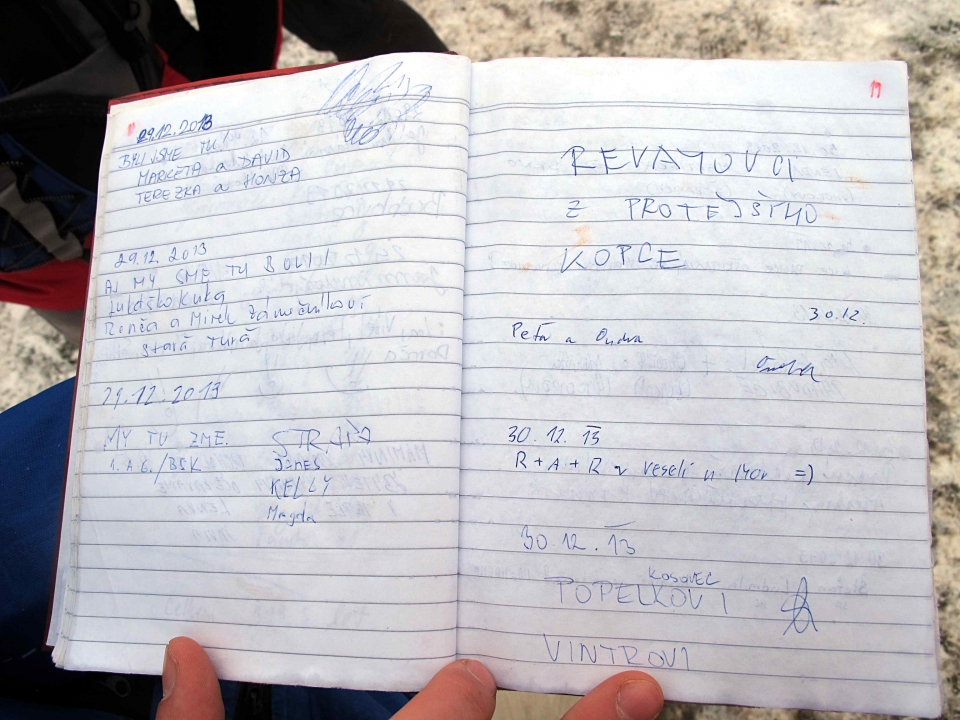 29.12.2013
BYLI JSME TU!
MARKÉTA a DAVID
TEREZKA a HONZA
29.12.2013
AJ MY SME TU BOLI!!
Renča a Mirek
Stará Turá
29.12.2013
MY TU ZME.
JAMES
KELLY
Magda
11
REVAYOVCI
Z PROTEJŠÍHO
KOPCE
30.12.
Peťa a Ondra
30.12.13
R + A + R veselí =)
30.12.13
KOSOVEC
POPELKOVI
VINTROVI